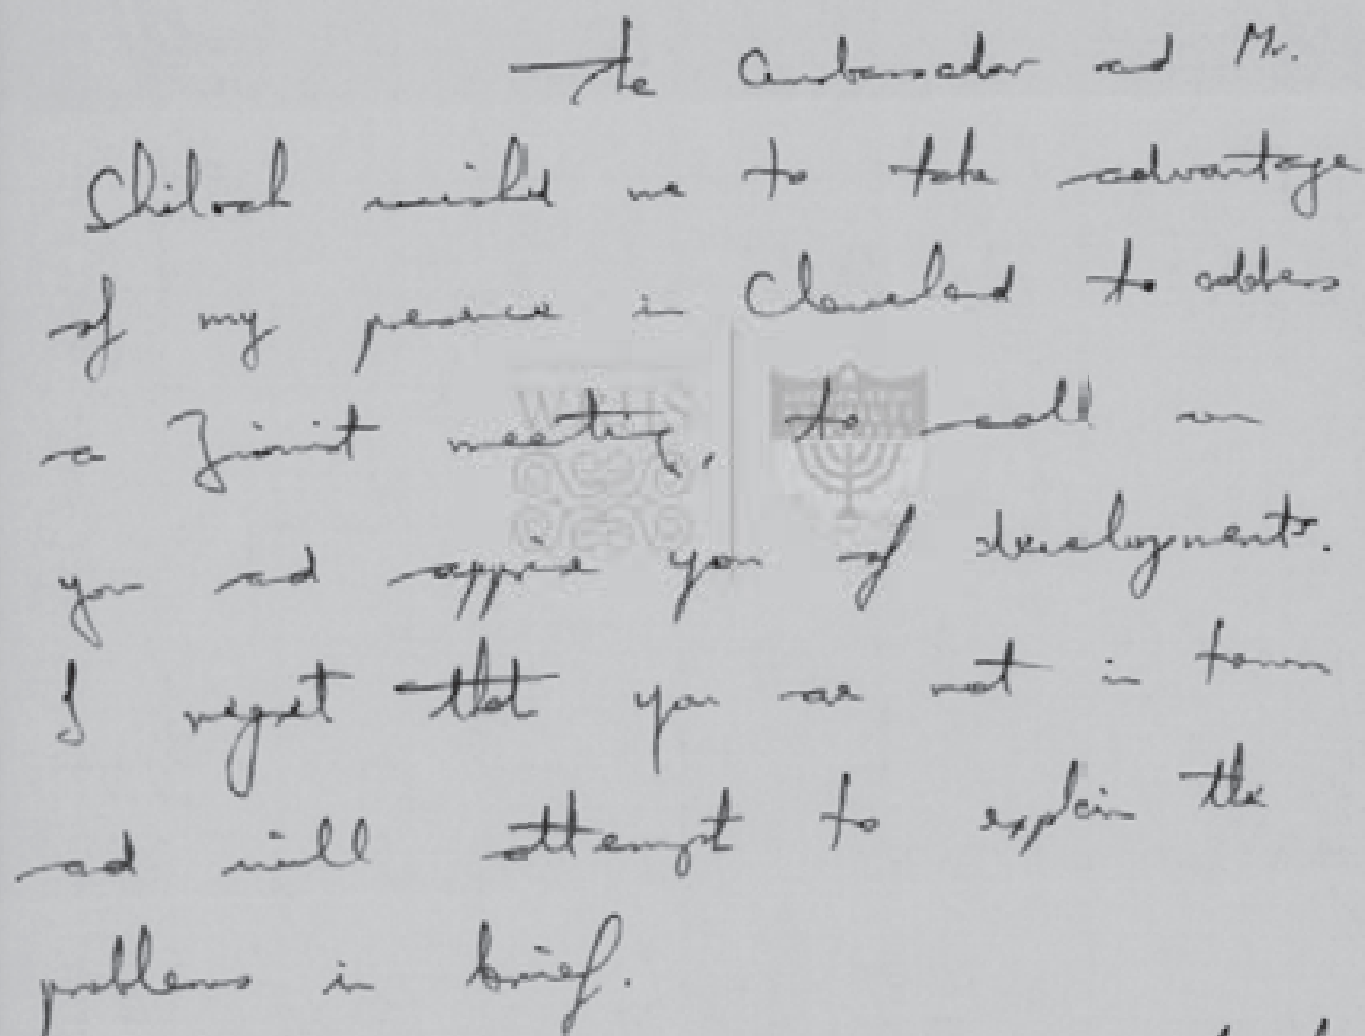 The Ambassador and Mr.
Shiloah wished me to take advantage
of my presence in Cleveland to address
a Zionist meeting, to call on
you and apprise you of developments.
I regret that you are not in town
and will attempt to explain the
problems in brief.
WRHS